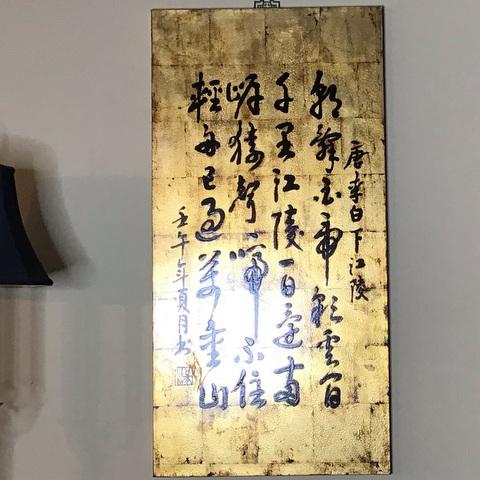 唐李白下江陵
朝辭白帝彩雲間
千里江陵一日還兩
岸猿聲啼不住
輕舟已過萬重山
壬午年夏月書